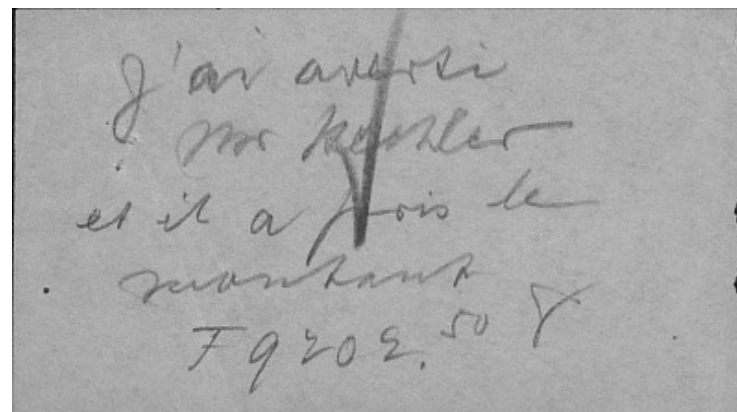 J'ai averti
Mr Koehler
et il a pris le
montant
F 9202.50